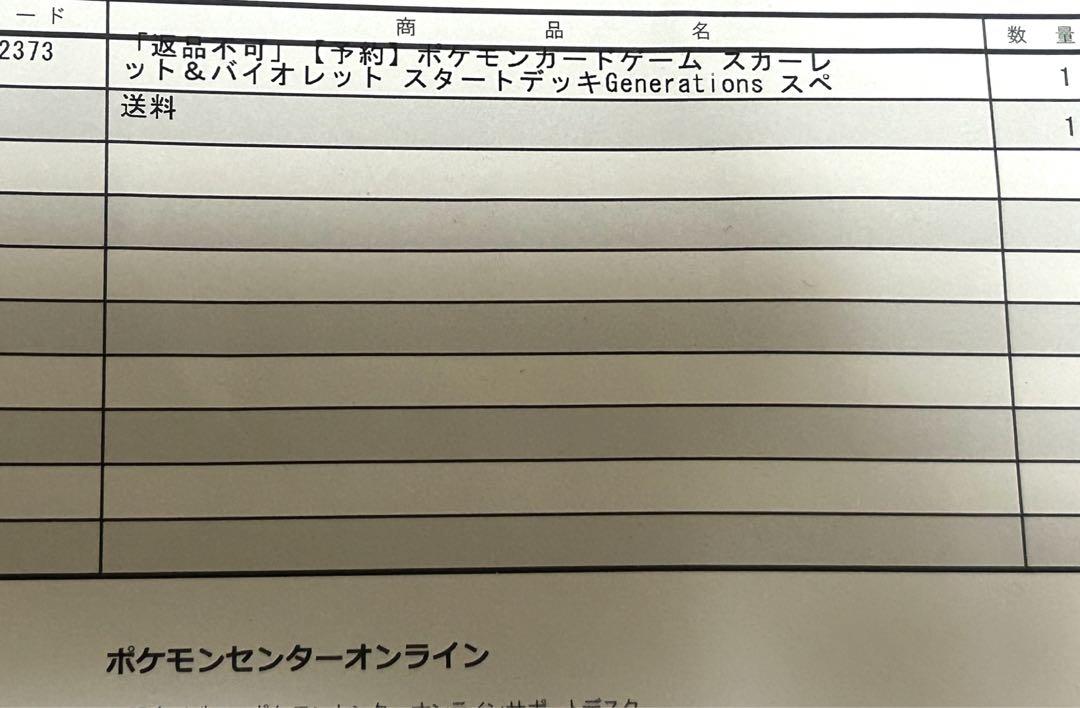 ード 商品名 数量
2373 「返品不可」【予約】ポケモンカードゲーム スカーレ
ット＆バイオレット スタートデッキGenerations スペ 1
送料 1
ポケモンセンターオンライン